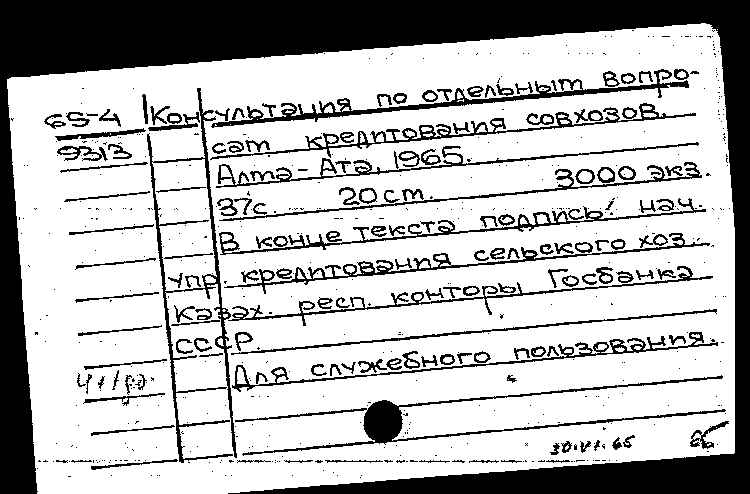 65-4 Консультация по отдельным вопро-
9313 сам кредитования совхозов.
Алма-Ата, 1965.
37с. 20 cm. 3000 экз.
В конце текста подпись: нач.
упр. кредитования сельского хоз.
Казах. респ. конторы Госбанка
СССР.
Для служебного пользования.
30.VI.65